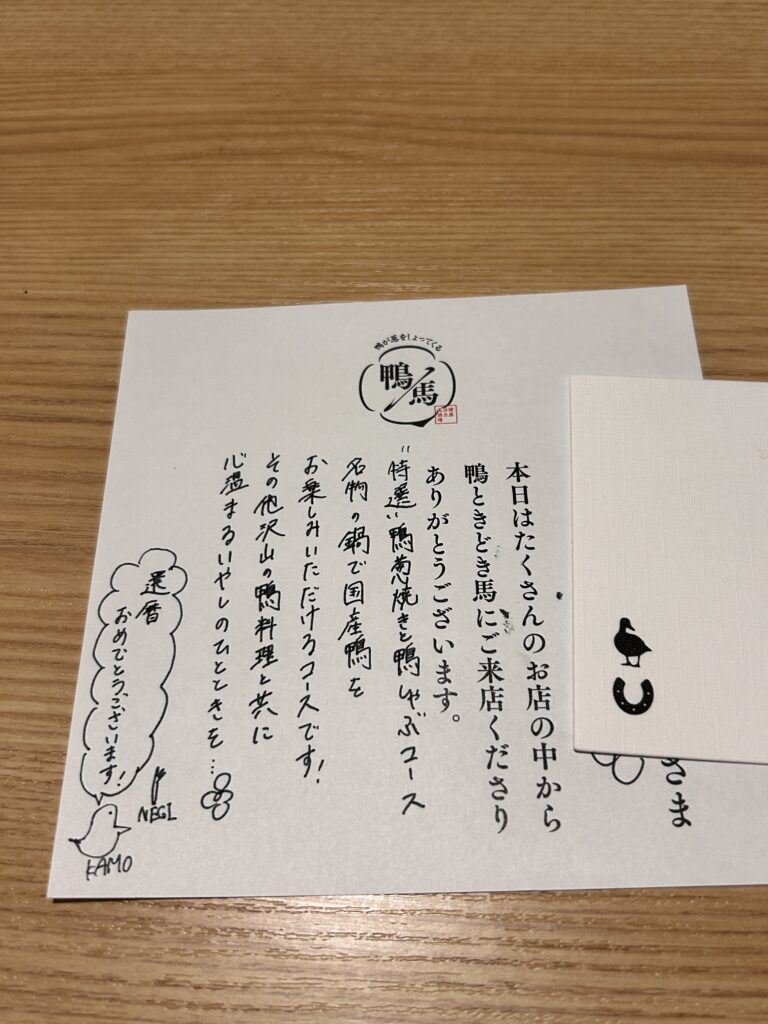 鴨が葱をしょってくる
鴨/馬
さま
本日はたくさんのお店の中から
鴨ときどき馬にご来店くださり
ありがとうございます。
"特選"鴨葱焼きと鴨しゃぶコース
名物の鍋で国産鴨を
お楽しみいただけるコースです!
その他沢山の鴨料理と共に
心温まるいやしのひとときを…
還暦
おめでとうございます!
NEGI
KAMO